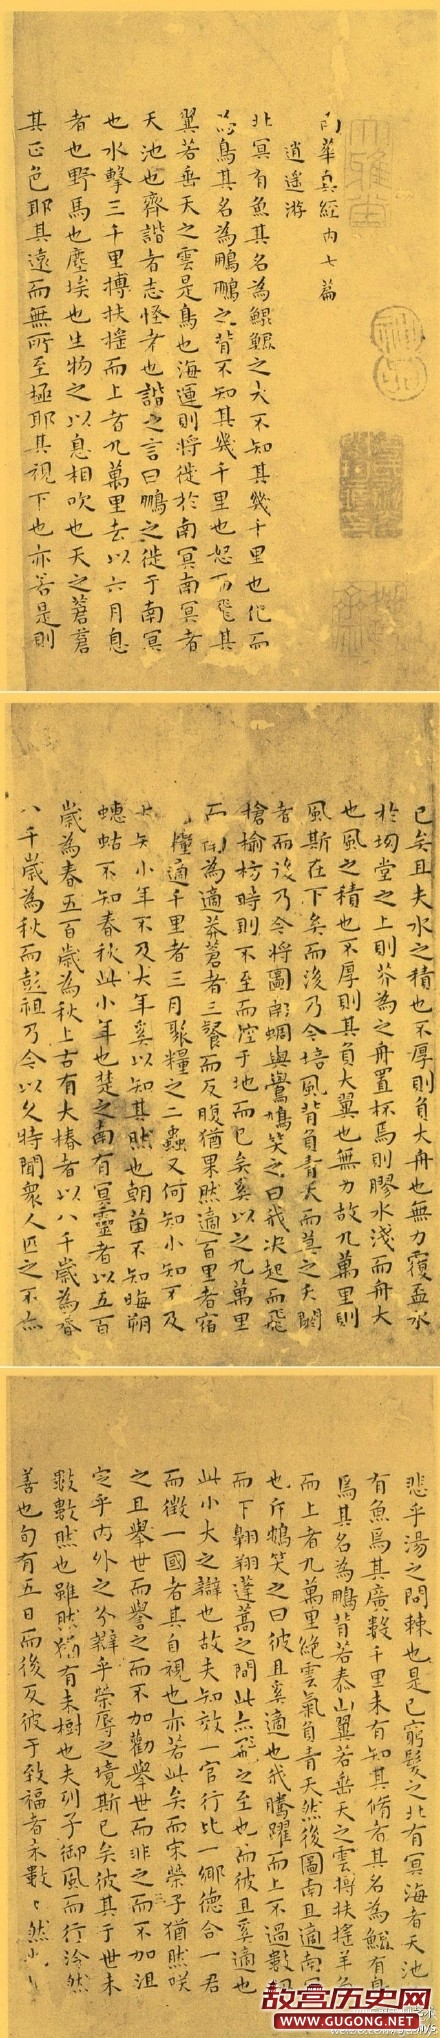 南華真經內七篇
逍遥游
北冥有魚其名為鯤鯤之大不知其幾千里也化而
為鳥其名為鵬鵬之背不知其幾千里也怒而飛其
翼若垂天之雲是鳥也海運則將徙於南冥南冥者
天池也齊諧者志怪者也諧之言曰鵬之徙于南冥
也水擊三千里摶扶搖而上者九萬里去以六月息
者也野馬也塵埃也生物之以息相吹也天之蒼蒼
其正色耶其遠而無所至極耶其視下也亦若是則
已矣且夫水之積也不厚則負大舟也無力覆盃水
於坳堂之上則芥為之舟置杯焉則膠水淺而舟大
也風之積也不厚則其負大翼也無力故九萬里則
風斯在下矣而後乃今培風背負青天而莫之夭閼
者而後乃今將圖南蜩與鷽鳩笑之曰我決起而飛
搶榆枋時則不至而控于地而已矣奚以之九萬里
而南為適莽蒼者三餐而反腹猶果然適百里者宿
糧適千里者三月聚糧之二蟲又何知小知不及
大知小年不及大年奚以知其然也朝菌不知晦朔
蟪蛄不知春秋此小年也楚之南有冥靈者以五百
歲為春五百歲為秋上古有大椿者以八千歲為春
八千歲為秋而彭祖乃今以久特聞衆人匹之不亦
悲乎湯之問棘也是已窮髮之北有冥海者天池
有魚焉其廣數千里未有知其脩者其名為鯤有鳥
焉其名為鵬背若泰山翼若垂天之雲摶扶搖羊角
而上者九萬里絶雲氣負青天然後圖南且適南冥
也斥鴳笑之曰彼且奚適也我騰躍而上不過數仞
而下翱翔蓬蒿之間此亦飛之至也而彼且奚適也
此小大之辯也故夫知效一官行比一鄉德合一君
而徵一國者其自視也亦若此矣而宋榮子猶然咲
之且舉世而譽之而不加勸舉世而非之而不加沮
定乎内外之分辯乎榮辱之境斯已矣彼其于世未
數數然也雖然猶有未樹也夫列子御風而行泠然
善也旬有五日而後反彼于致福者未數〻然也
故宫历史网
WWW.GUGONG.NET